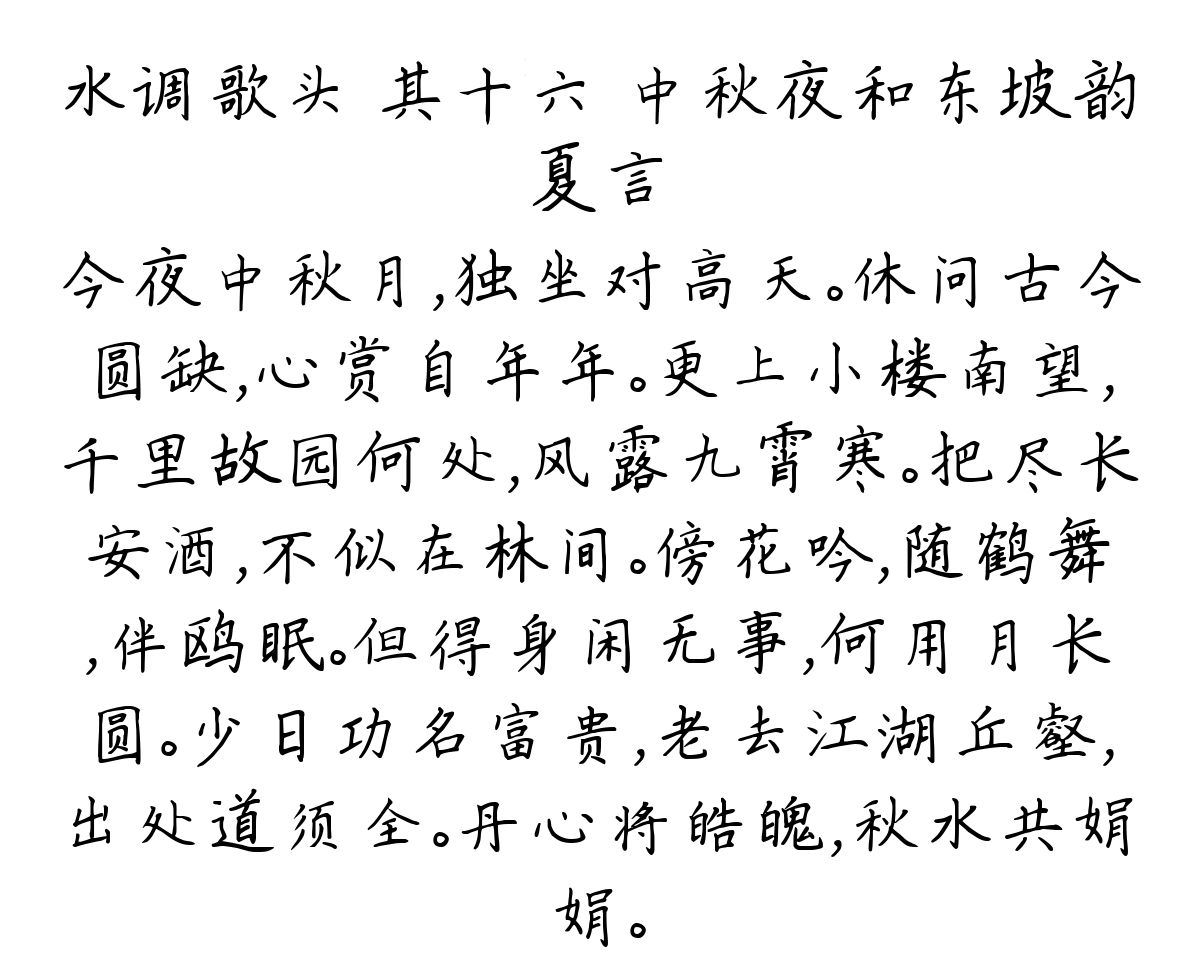 水调歌头 其十六 中秋夜和东坡韵
夏言
今夜中秋月,独坐对高天。休问古今
圆缺,心赏自年年。更上小楼南望,
千里故园何处,风露九霄寒。把尽长
安酒,不似在林间。傍花吟,随鹤舞
,伴鸥眠。但得身闲无事,何用月长
圆。少日功名富贵,老去江湖丘壑,
出处道须全。丹心将皓魄,秋水共娟
娟。